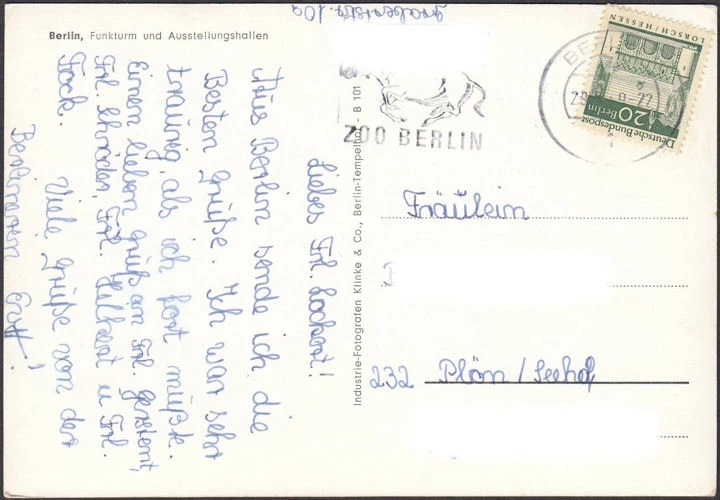 Berlin, Funkturm und Ausstellungshallen
Liebes Frl. Lockert!
Aus Berlin sende ich die
Besten Grüße. Ich war sehr
traurig, als ich fort mußte.
Einen lieben Gruß an Frl. Gerstent,
Frl. Schröder, Frl. Hilkert u. Frl.
Fock. Viele Grüße von der
Berlinerin
Industrie-Fotografen Klinke & Co., Berlin-Tempelhof - B 101
ZOO BERLIN
LORSCH/HESSEN
Deutsche Bundespost
Berlin
20
Fräulein
232 Plön/Seehof